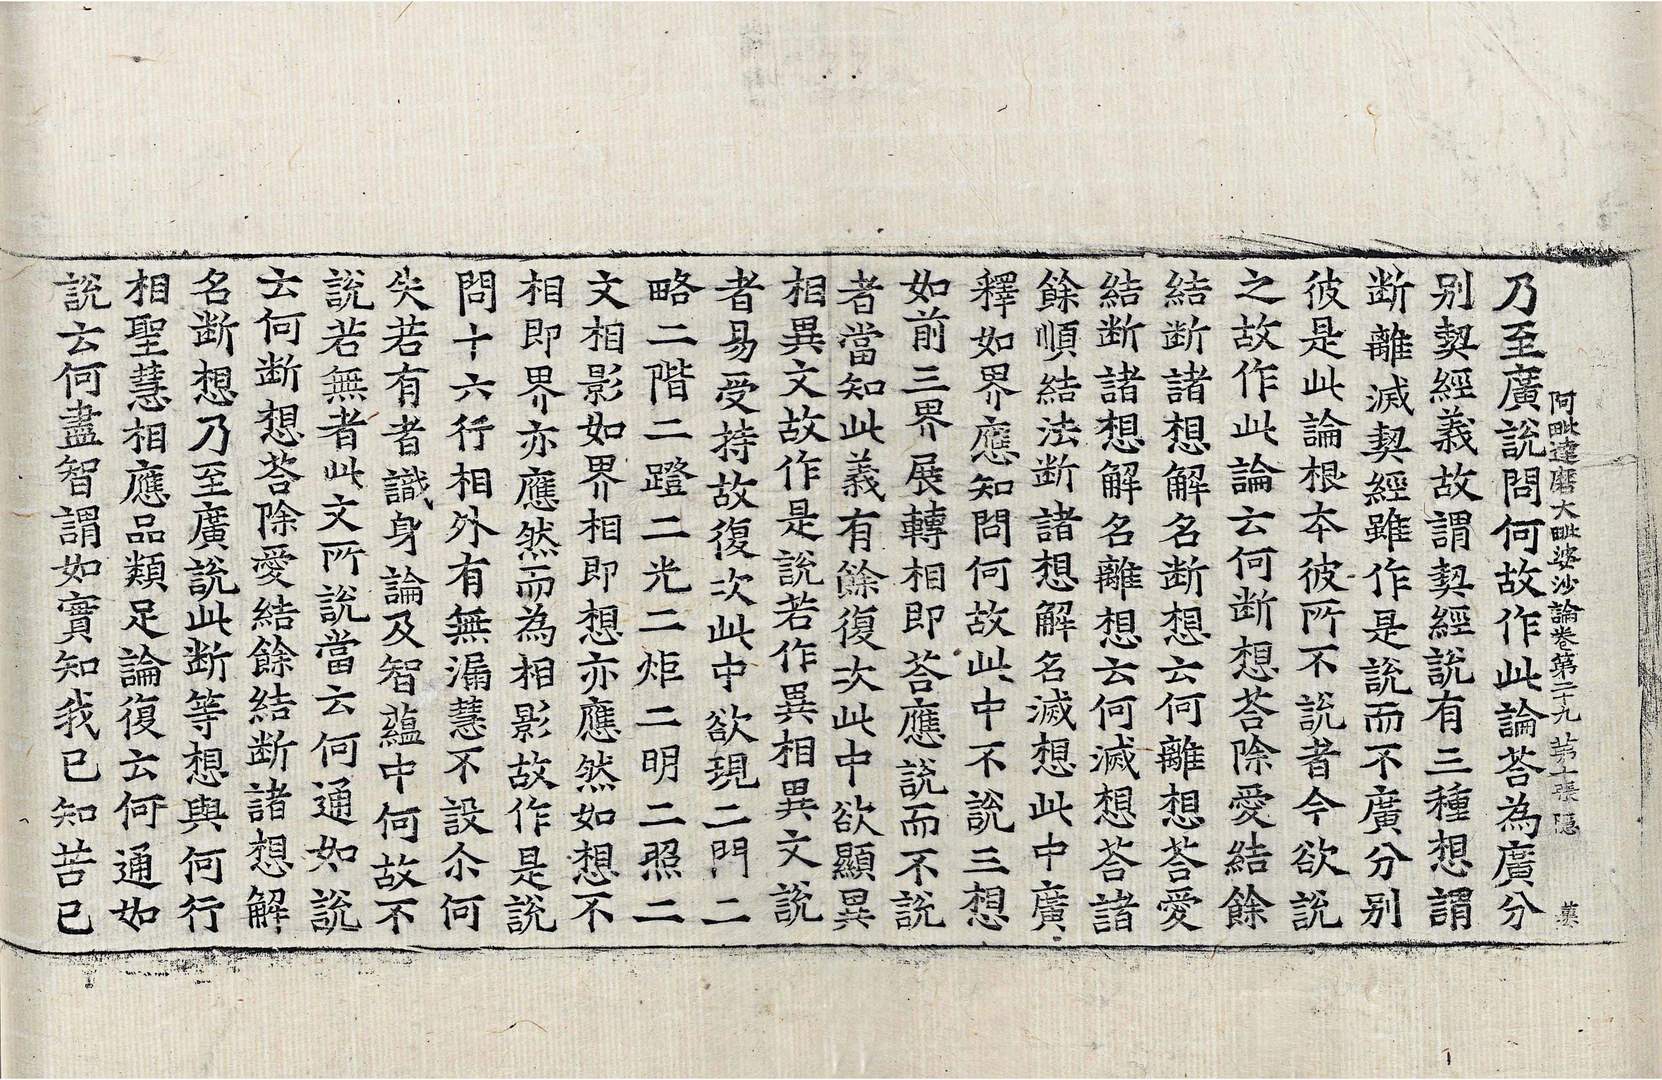 阿毗達磨大毗婆沙論卷第二十九　第十張　隱
乃至廣說問何故作此論荅為廣分
別契經義故謂契經說有三種想謂
断離滅契經雖作是說而不廣分別
彼是此論根本彼所不說者今欲說
之故作此論云何断想荅除愛結餘
結断諸想解名断想云何離想荅愛
結断諸想解名離想云何滅想荅諸
餘順結法断諸想解名滅想此中廣
釋如界應知問何故此中不說三想
如前三界展轉相即荅應說而不說
者當知此義有餘復次此中欲顯異
相異文故作是說若作異相異文說
者易受持故復次此中欲現二門二
略二階二蹬二光二炬二明二照二
文相影如界相即想亦應然如想不
相即界亦應然而為相影故作是說
問十六行相外有無漏慧不設尒何
失若有者識身論及智蘊中何故不
說若無者此文所說當云何通如說
云何断想荅除愛結餘結断諸想解
名断想乃至廣說此断等想與何行
相聖慧相應品類足論復云何通如
說云何盡智謂如實知我已知苦已